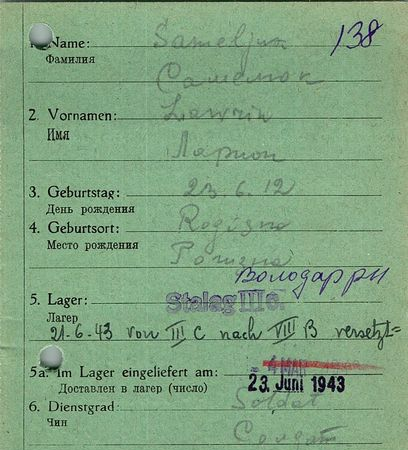 1. Name: Sameljuk 138
Фамилия
Самелюк
2. Vornamen: Lawrin
Имя
Ларион
3. Geburtstag: 23.6.12
День рождения
4. Geburtsort: Rogózna
Место рождения
Володар рн
5. Lager: Stalag III C.
Лагер
21-6.43 von III C nach VIII B versetzt=
5a. Im Lager eingeliefert am: 23. Juni 1943
Доставлен в лагер (число)
6. Dienstgrad: Soldat
Чин Солдат